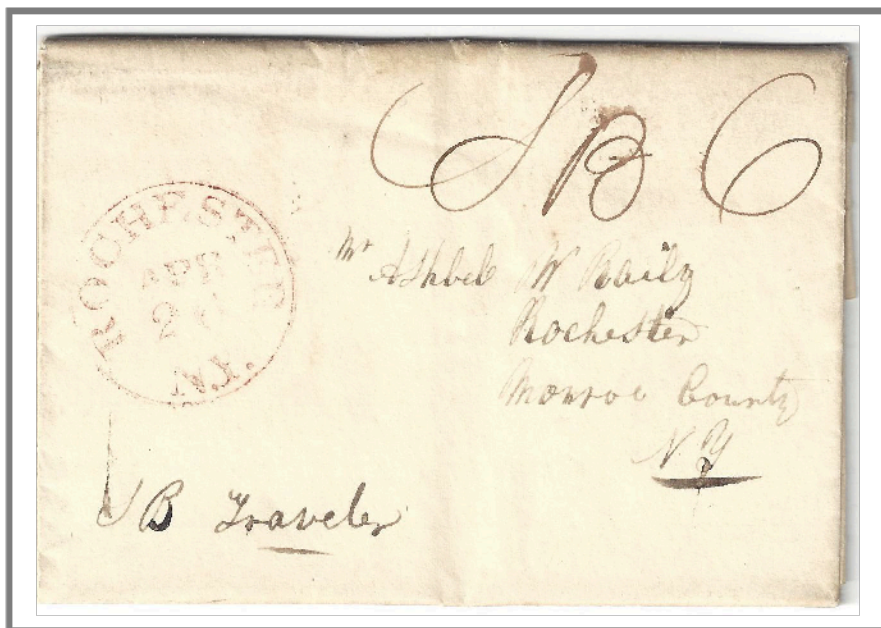 S B 6
ROCHESTER
APR
N.Y.
Mr Ashbel W Raily
Rochester
Monroe County
N.Y
S B Traveler